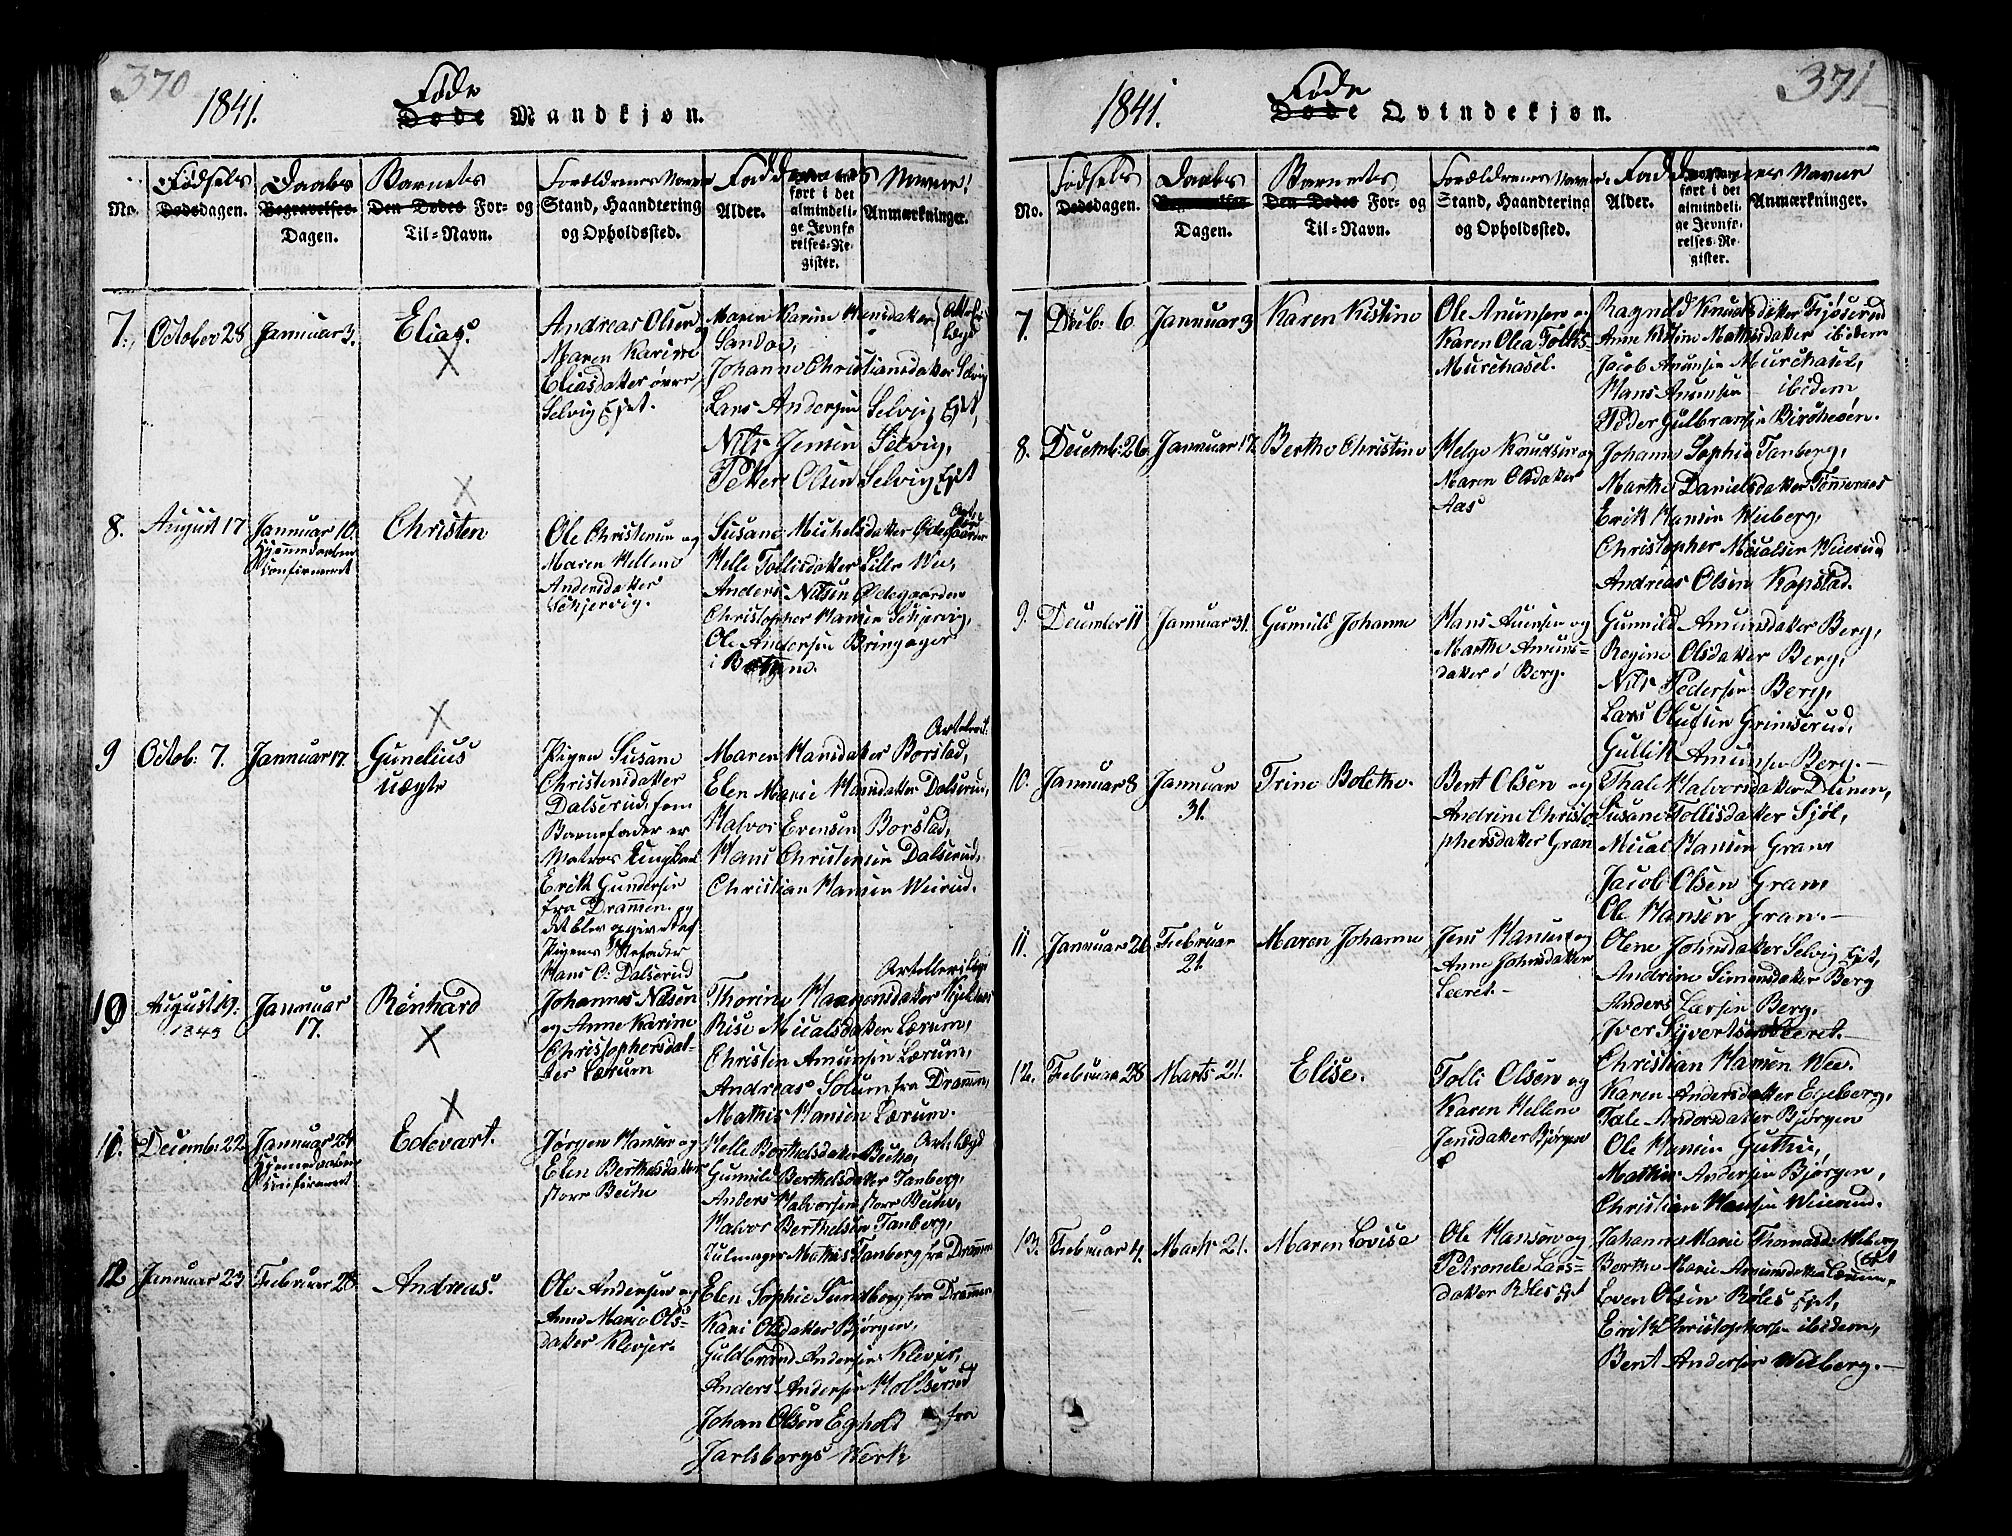 370
1841.
Føde
Døde Mandkjøn.
No.
Fødsels
Dødsdagen.
Daabs
Begravelses-
Dagen.
Barnets
Den Dødes For- og
Til-Navn.
Forældrenes Navne
Stand, Haandtering
og Opholdssted.
Faddernes Navne!
Alder.
ført i det
almindeli-
ge Jevnfø-
relses-Re-
gister.
Anmærkninger.
7.
October 28
Januar 3.
Elias.
Andreas Olsen og
Maren Karine
Eliasdatter øvre
Selvig Ejet.
Maren Karine Hansdatter
Sandoe,
Johanne Christiansdatter Selvig
Lars Andersen Selvig Ejet,
Nils Jensen Selvig,
Petter Olsen Selvig Ejet
8.
August 17
Januar 10.
Hjemmedøbt
Confirmeret
Christen
Ole Christensen og
Maren Hellene
Andersdatter
Schjervig.
Susane Michelsdatter Ødegaarden
Helle Tollisdatter Lille Wee,
Anders Nilsen Ødegaarden
Christopher Hansen Schjervig,
Ole Andersen Bringager
9
Octob: 7.
Januar 17.
Gunelius
uægte
Pigen Susane
Christensdatter
Dalserud, som
Barnefader er
Matros
Erik Gundersen
fra Drammen og
det blev ogivet af
Pigens
Hans C: Dalserud
Maren Hansdatter Borstad,
Elen Marie Hansdatter Dalserud,
Halvor Evensen Borstad,
Hans Christensen Dalserud,
Christian Hansen Weirud.
10
August 19.
1843
Januar
17.
Reinhard
Johannes Nilsen
og Anne Karine
Christophersdat-
ter Lærum
Rise Micalsdatter Lærum,
Christen Amunsen Lærum,
Andreas Solum fra Drammen,
Mathis Hansen Lærum.
11.
Decemb: 22
Januar 24
Hjemmedøbt
Confirmeret
Edevart.
Jørgen Hansen og
Elen Berthelsdatter
store Bethe
Helle Berthelsdatter Bethe,
Gunnild Berthelsdatter Tanberg,
Anders Halvorsen store Bethe,
Halvor Berthelsen Tanberg,
Mathis Tanberg fra Drammen
12
Januar 23
Februar 28
Andreas.
Ole Andersen og
Anne Marie Ols-
datter Klevjer.
Elen Sophie Sundberg fra Drammen
Kari Olsdatter Bjørgen,
Guldbrand Andersen Klevjer,
Anders Andersen Holtserud
Johan Olsen Egholt fra
Jarlsbergs Werk
371
1841.
Føde
Døde Qvindekjøn.
No.
Fødsels
Dødsdagen.
Daabs
Dagen.
Barnets
Den Dødes For- og
Til-Navn.
Forældrenes Navne.
Stand, Haandtering
og Opholdssted.
Faddernes Navne
Alder.
ført i det
almindeli-
ge Jevnfø-
relses-Re-
gister.
Anmærkninger.
7.
Deceb: 6
Januar 3
Karen Kistine
Ole Anunsen og
Karen Olea Tolfs-
Murchasel.
Ragnild Knudsdatter Fjøserud
Anne Kistine Mathisdatter ibidem
Jacob Anunsen Murchasel,
Hans Anunsen ibidem
Peder Gulbransen
8.
Decemb: 26
Januar 17.
Berthe Christine
Helge Knudsen og
Maren Olsdatter
Aas
Johanne Sophie Tanberg,
Marthe Danielsdatter Tømmeraas
Erik Hansen Weeberg,
Christopher Micalsen Weierud
Andreas Olsen Kopstad.
9.
December 11
Januar 31.
Gunnild Johanne
Hans Anensen og
Marthe Amuns-
datter i Berg.
Gunnild Amunsdatter Berg,
Regine Olsdatter Berg,
Nils Pedersen Berg,
Lars Olufsen Grimserud,
Gullik Amunsen Berg.
10.
Januar 8
Januar
31.
Trine Bolethe.
Bent Olsen og
Andrine Christo-
phersdatter Gran
Thale Halvorsdatter Dunen,
Susane Tollisdatter Sjøl,
Mical Hansen Gran
Jacob Olsen Gran,
Ole Hansen Gran.
11.
Januar 20
Februar
21.
Maren Johanne
Jens Hansen og
Anne Johnsdatter
Leeret.
Olene Johnsdatter Selvig Ejet,
Andrine Simensdatter Berg
Anders Larsen Berg,
Iver Syvertsen Leeret.
Christian Hansen Wee.
12.
Februar 28
Marts 21.
Elise.
Tolli Olsen og
Karen Hellene
Jensdatter Bjørgen
Karen Andersdatter Egeberg,
Tale Andersdatter Bjørgen
Ole Hansen Guthu,
Mathis Andersen Bjørgen,
Christian Hansen Weierud.
13.
Februar 4.
Marts 21.
Maren Lovise
Ole Hansen og
Petronele Lars-
datter Røles Ejet
Johanne Marie Thomasdt Weberg
Ejet
Berthe Marie Amunsdatter Lærum,
Even Olsen Røles Ejet,
Erik Christophersen ibidem,
Bent Andersen Weeberg.